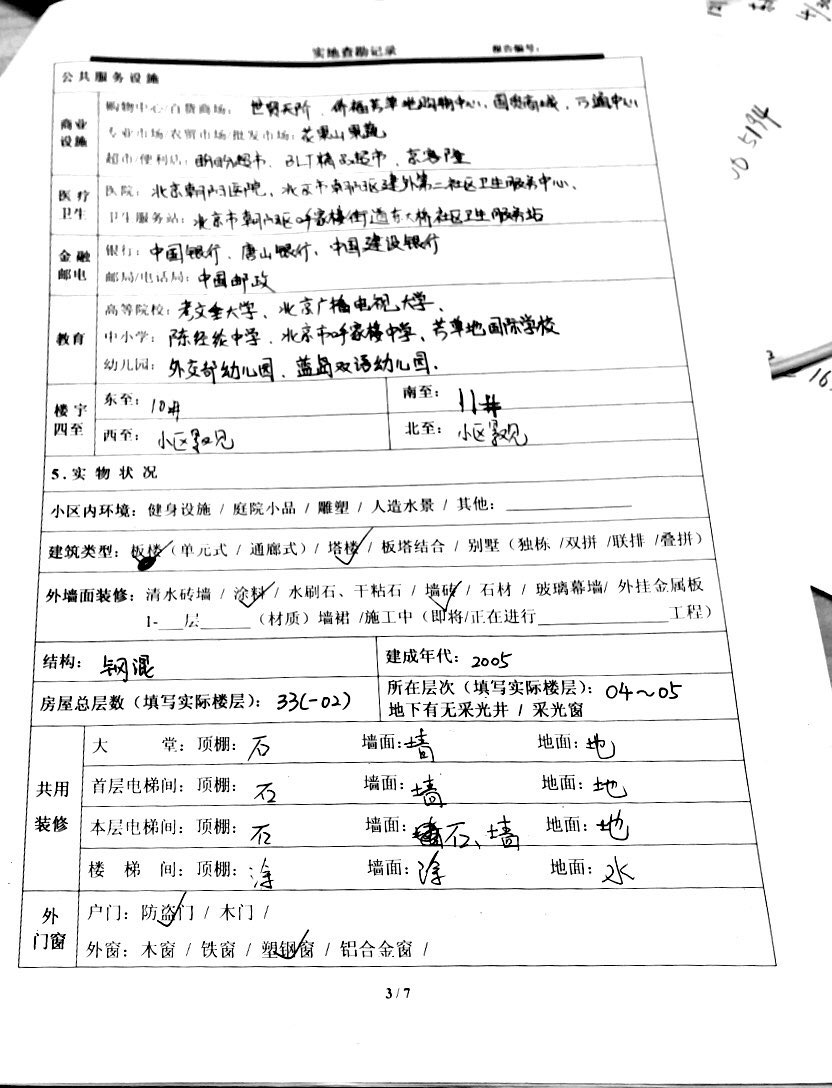 实地查勘记录 报告编号:
公共服务设施
商业设施
购物中心/百货商场: 世贸天阶、侨福芳草地购物中心、国贸商城、万通中心
专业市场/农贸市场/批发市场: 花果山果蔬
超市/便利店: 超市、BLT精品超市、京客隆
医疗卫生
医院: 北京朝阳医院、北京市朝阳区建外第二社区卫生服务中心、
卫生服务站: 北京市朝阳区呼家楼街道东大桥社区卫生服务站
金融邮电
银行: 中国银行、唐山银行、中国建设银行
邮局/电话局: 中国邮政
教育
高等院校: 考文垂大学、北京广播电视大学、
中小学: 陈经纶中学、北京市呼家楼中学、芳草地国际学校
幼儿园: 外交部幼儿园、蓝岛双语幼儿园、
楼宇四至
东至: 10# 南至: 11#
西至: 小区景观 北至: 小区景观
5.实物状况
小区内环境: 健身设施 / 庭院小品 / 雕塑 / 人造水景 / 其他:
建筑类型: 板楼 (单元式 / 通廊式) / 塔楼 / 板塔结合 / 别墅 (独栋 /双拼 /联排 /叠拼)
外墙面装修: 清水砖墙 / 涂料 / 水刷石、干粘石 / 墙砖 / 石材 / 玻璃幕墙/ 外挂金属板
1- 层 (材质) 墙裙 /施工中 (即将/正在进行 工程)
结构: 钢混 建成年代: 2005
房屋总层数 (填写实际楼层): 33(-02) 所在层次 (填写实际楼层): 04~05
地下有无采光井 / 采光窗
共用装修
大堂: 顶棚: 石 墙面: 墙 地面: 地
首层电梯间: 顶棚: 石 墙面: 墙 地面: 地
本层电梯间: 顶棚: 石 墙面: 石、墙 地面: 地
楼梯间: 顶棚: 涂 墙面: 涂 地面: 水
外门窗
户门: 防盗门 / 木门 /
外窗: 木窗 / 铁窗 / 塑钢窗 / 铝合金窗 /
3 / 7